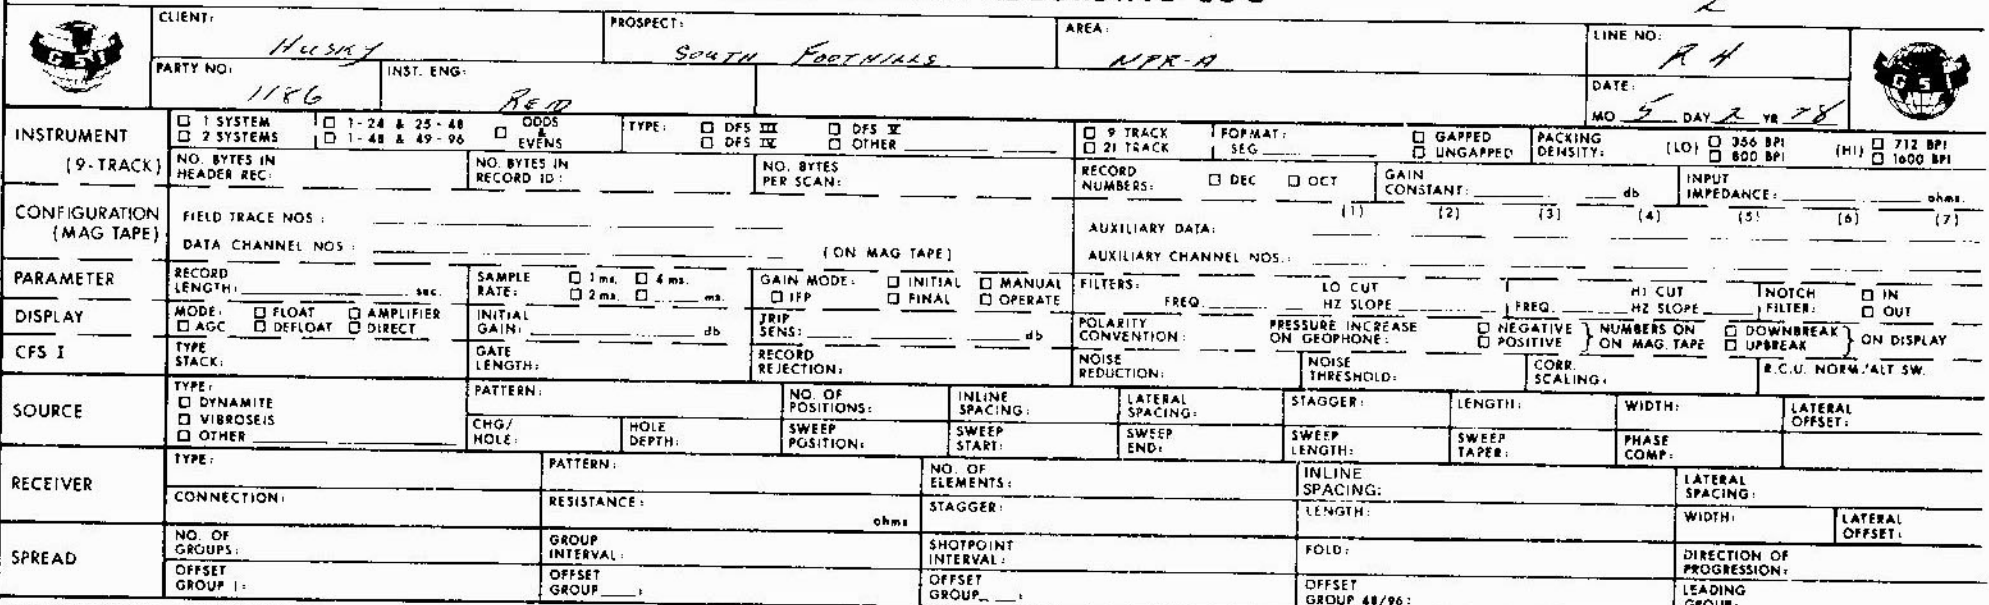 2
CLIENT: PROSPECT: AREA: LINE NO:
Husky South Foothills NPR-A R 4
GSI GSI
PARTY NO: INST. ENG: DATE:
1186 MO 5 DAY 2 YR 78
INSTRUMENT □ 1 SYSTEM □ 1-24 & 25-48 □ ODDS & EVENS TYPE: □ DFS III □ DFS V □ 9 TRACK FORMAT: □ GAPPED PACKING DENSITY: (LO) □ 356 BPI (HI) □ 712 BPI
(9-TRACK) □ 2 SYSTEMS □ 1-48 & 49-96 □ DFS IV □ OTHER □ 21 TRACK SEG □ UNGAPPED □ 800 BPI □ 1600 BPI
NO. BYTES IN HEADER REC: NO. BYTES IN RECORD ID: NO. BYTES PER SCAN: RECORD NUMBERS: □ DEC □ OCT GAIN CONSTANT: db INPUT IMPEDANCE: ohms.
CONFIGURATION (MAG TAPE) FIELD TRACE NOS: AUXILIARY DATA: (1) (2) (3) (4) (5) (6) (7)
DATA CHANNEL NOS: (ON MAG TAPE) AUXILIARY CHANNEL NOS.:
PARAMETER RECORD LENGTH: sec. SAMPLE RATE: □ 1 ms. □ 4 ms. □ 2 ms. □ ms. GAIN MODE: □ INITIAL □ MANUAL □ IFP □ FINAL □ OPERATE FILTERS: FREQ. LO CUT HZ SLOPE FREQ. HI CUT HZ SLOPE NOTCH FILTER: □ IN □ OUT
DISPLAY MODE: □ FLOAT □ AMPLIFIER □ AGC □ DEFLOAT □ DIRECT INITIAL GAIN: db TRIP SENS: db POLARITY CONVENTION: PRESSURE INCREASE ON GEOPHONE: □ NEGATIVE □ POSITIVE } NUMBERS ON MAG. TAPE □ DOWNBREAK □ UPBREAK } ON DISPLAY
CFS I TYPE STACK: GATE LENGTH: RECORD REJECTION: NOISE REDUCTION: NOISE THRESHOLD: CORR. SCALING: R.C.U. NORM./ALT SW.
SOURCE TYPE: □ DYNAMITE □ VIBROSEIS □ OTHER PATTERN: NO. OF POSITIONS: INLINE SPACING: LATERAL SPACING: STAGGER: LENGTH: WIDTH: LATERAL OFFSET:
CHG/HOLE: HOLE DEPTH: SWEEP POSITION: SWEEP START: SWEEP END: SWEEP LENGTH: SWEEP TAPER: PHASE COMP:
RECEIVER TYPE: PATTERN: NO. OF ELEMENTS: INLINE SPACING: LATERAL SPACING:
CONNECTION: RESISTANCE: ohms STAGGER: LENGTH: WIDTH: LATERAL OFFSET:
SPREAD NO. OF GROUPS: GROUP INTERVAL: SHOTPOINT INTERVAL: FOLD: DIRECTION OF PROGRESSION:
OFFSET GROUP 1: OFFSET GROUP : OFFSET GROUP : OFFSET GROUP 48/96: LEADING